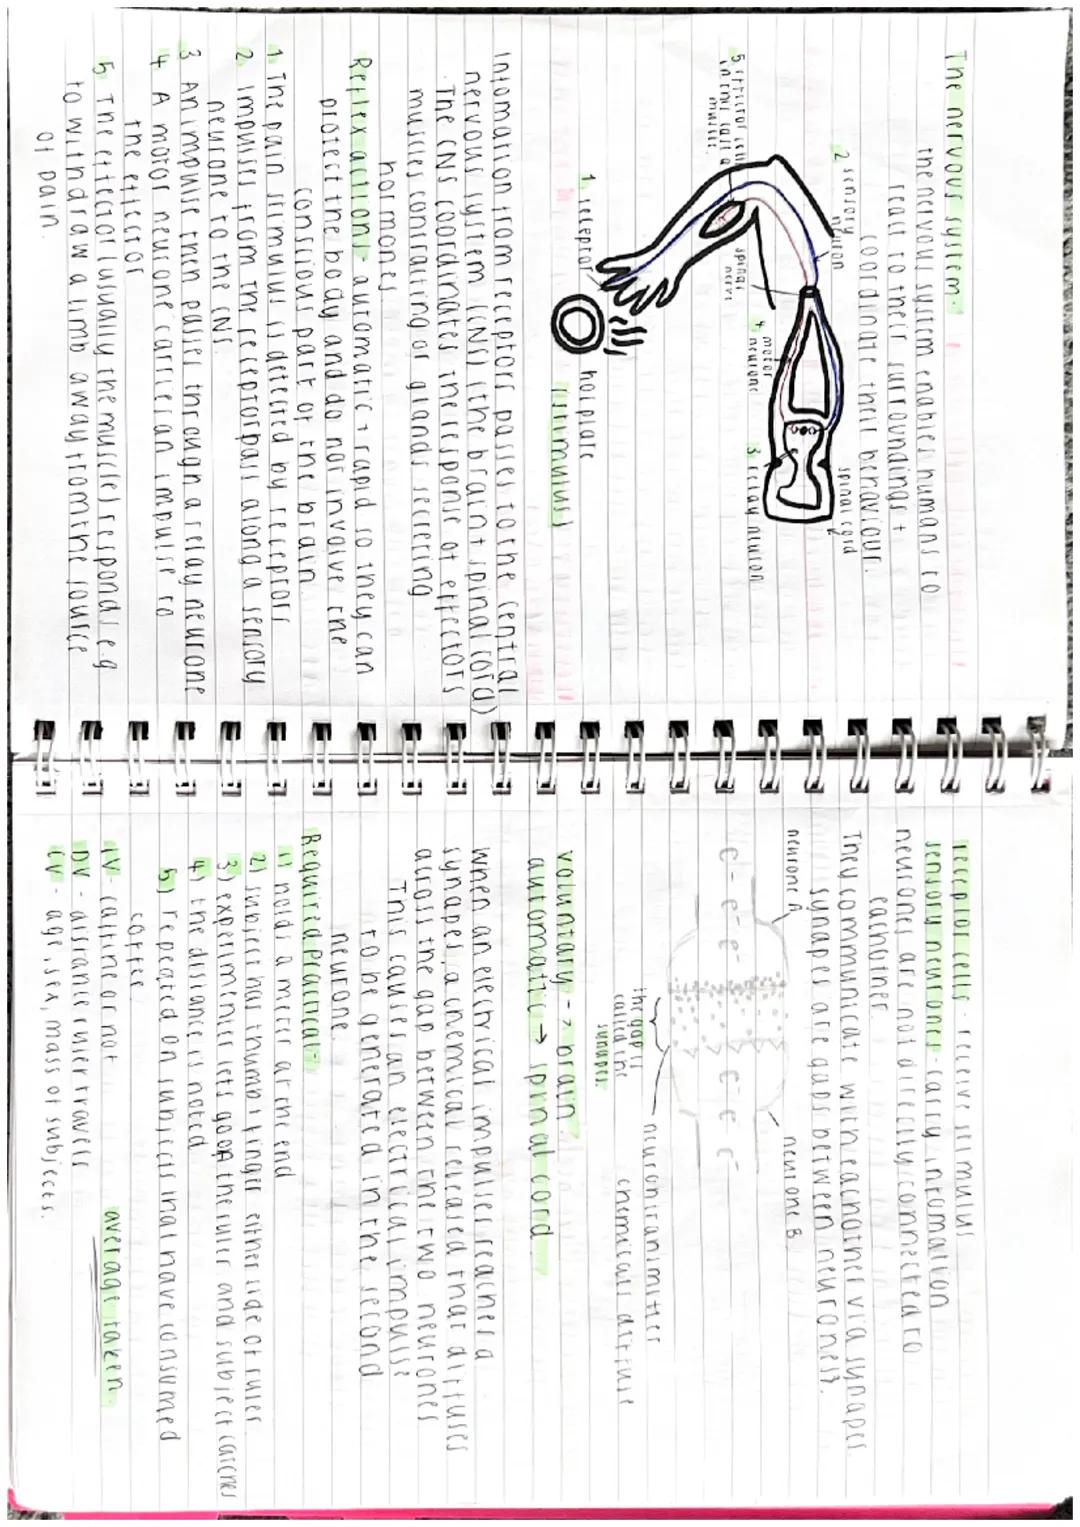 The nervous system
the nervous system enables humans to
react to their surroundings +
coordinate their behaviour.
2 sensory neuron
spinal cord
5. effector cell
in this case a
muscle.
spinal
nerve
4 motor
neurone
3 relay neuron
1. receptor
hot plate
(stimulus)
Infomation from receptors passes to the central
nervous system (CNS) (the brain + spinal cord)
· The CNS coordinates the response of effectors
muscles contracting or glands secreting
hormones.
Reflex actions automatic + rapid so they can
protect the body and do not involve the
conscious part of the brain.
1. The pain stimulus is detected by receptors
2. Impulses from the receptor pass along a sensory
neurone to the CNS.
3 An impulse then passes through a relay neurone
4 A motor neurone carries an impulse to
the effector
5 The effector (usually the muscle) responds e.g
to withdraw a limb away from the source
of pain.
receptor cells - receive stimulus
sensory neurones - carry infomation
neurones are not directly connected to
eachother.
They communicate with eachother via synapes.
synapes are gaps between neurones.
neurone A
neurone B
e- e- e- e- e- e-
the gap is
called the
synapes.
neurontransmitter
chemicals diffuse
voluntary -> brain
automatic → spinal cord
when an electrical impulses reaches a
synapes, a chemical released that diffuses
across the gap between the two neurones
This causes an electrical impulse
to be generated in the second
neurone.
Required Practical-
1) holds a meter at the end
2) subject has thumb + finger either side of ruler
3) experimenter lets go on the ruler and subject catches
4) the distance is noted
5) repeated on subjects that have consumed
coffee.
IV - caffine or not
DV - distance ruler travels
CV - age, sex, mass of subjects.
average taken